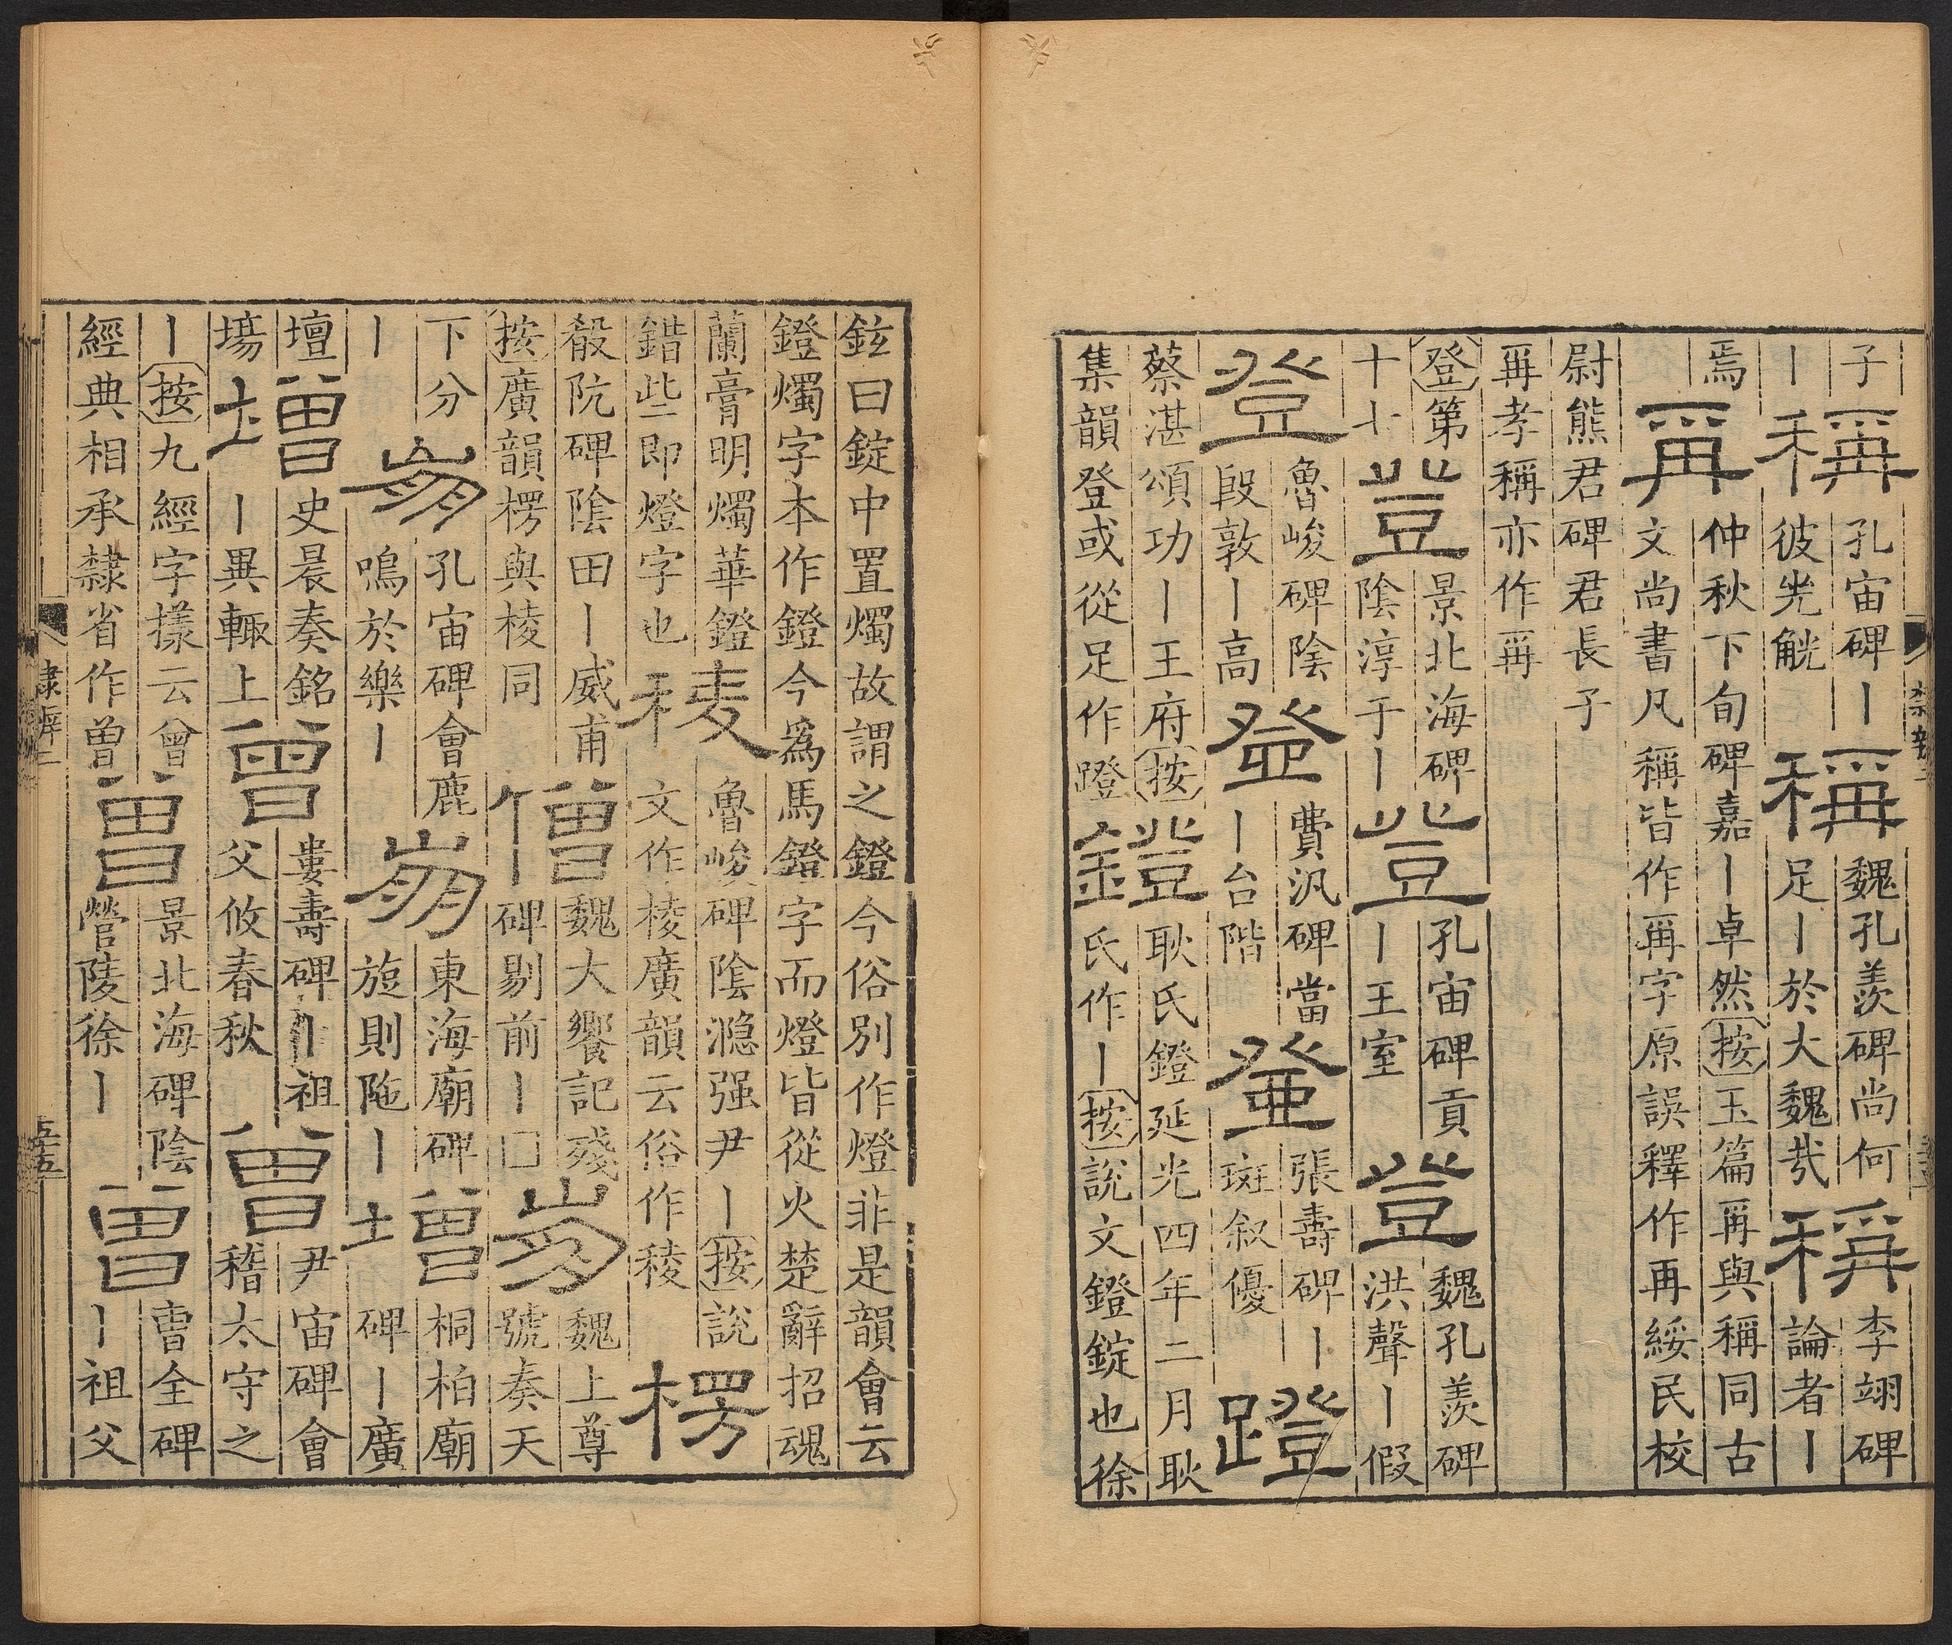 子
丨
稱
孔宙碑丨
彼兕觥
稱
魏孔羨碑尚何
足丨於大魏㢤
稱
李翊碑
論者丨
焉
爯
仲秋下旬碑嘉丨卓然按玉篇爯與稱同古
文尚書凡稱皆作爯字原誤釋作再綏民校
尉熊君碑君長子
爯孝稱亦作爯
登第
十七
豋
景北海碑
陰淳于丨
豋
孔宙碑貢
丨王室
豋
魏孔羨碑
洪聲丨假
登
魯峻碑陰
段敦丨高
登
費汎碑當
丨台階
登
張壽碑丨
斑叙優
蹬
蔡湛頌功丨王府按
集韻登或從足作蹬
鐙
耿氏鐙延光四年二月耿
氏作丨按說文鐙錠也徐
鉉曰錠中置燭故謂之鐙今俗別作燈非是韻會云
鐙燭字本作鐙今爲馬鐙字而燈皆從火楚辭招魂
蘭膏明燭華鐙
錯些即燈字也
稜
魯峻碑陰㶏强尹丨按說
文作棱廣韻云俗作稜
楞
殽阬碑陰田丨威甫
按廣韻楞與棱同
僧
魏大饗記殘
碑剔前丨□
崩
魏上尊
號奏天
下分
丨
崩
孔宙碑會鹿
鳴於樂丨
崩
東海廟碑
旋則陁丨
增
桐柏廟
碑丨廣
壇
場
增
史晨奏銘
丨異輒上
曾
婁壽碑丨祖
父攸春秋
曾
尹宙碑會
稽太守之
丨按九經字樣云曾
經典相承隸省作曽
曽
景北海碑陰
營陵徐丨
曽
曹全碑
丨祖父
隸辨二
五十五